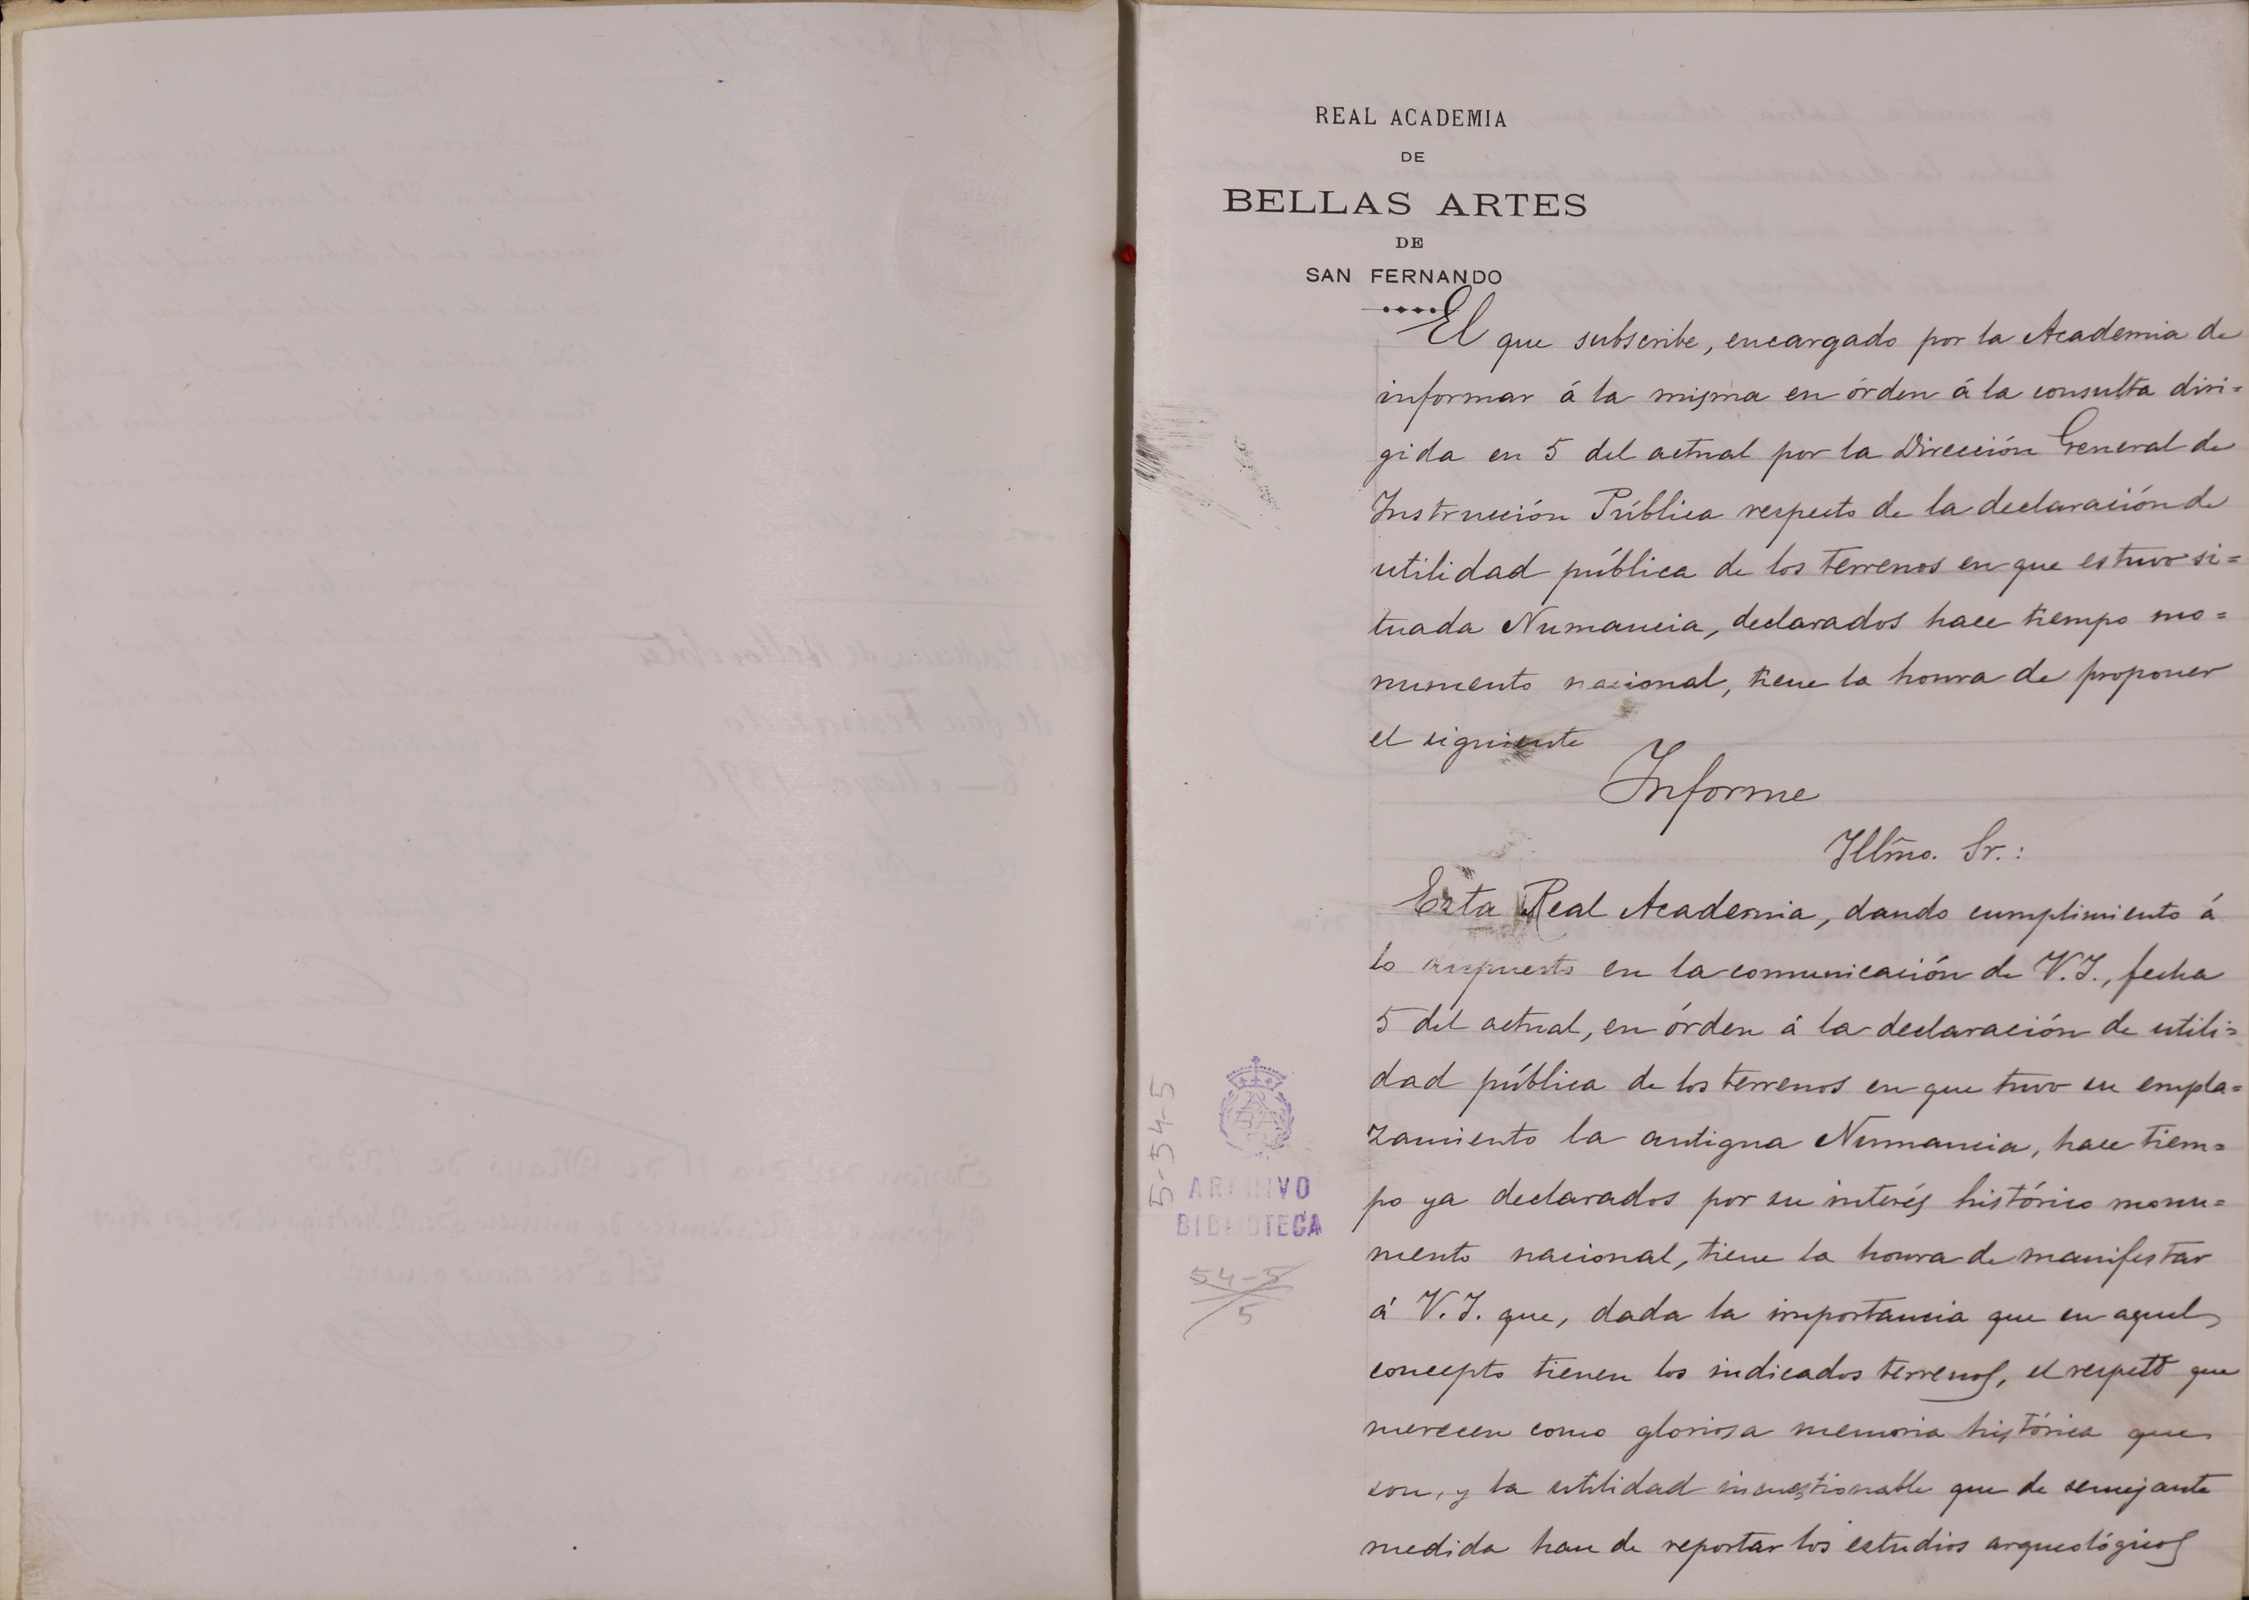 REAL ACADEMIA
DE
BELLAS ARTES
DE
SAN FERNANDO
El que subscribe, encargado por la Academia de
informar á la misma en órden á la consulta diri=
gida en 5 del actual por la Dirección General de
Instrucción Pública respecto de la declaración de
utilidad pública de los terrenos en que estuvo si=
tuada Numancia, declarados hace tiempo mo=
numento nacional, tiene la honra de proponer
el siguiente
Informe
Illmo. Sr.:
Esta Real Academia, dando cumplimiento á
lo dispuesto en la comunicación de V.I., fecha
5 del actual, en órden á la declaración de utili=
dad pública de los terrenos en que tuvo su empla=
zamiento la antigua Numancia, hace tiem=
po ya declarados por su interés histórico monu=
mento nacional, tiene la honra de manifestar
á V.I. que, dada la importancia que en aquel
concepto tienen los indicados terrenos, el respeto que
merecen como gloriosa memoria histórica que
son, y la utilidad incuestionable que de semejante
medida han de reportar los estudios arqueológicos
5-54-5
ARCHIVO
BIBLIOTECA
54-5
5